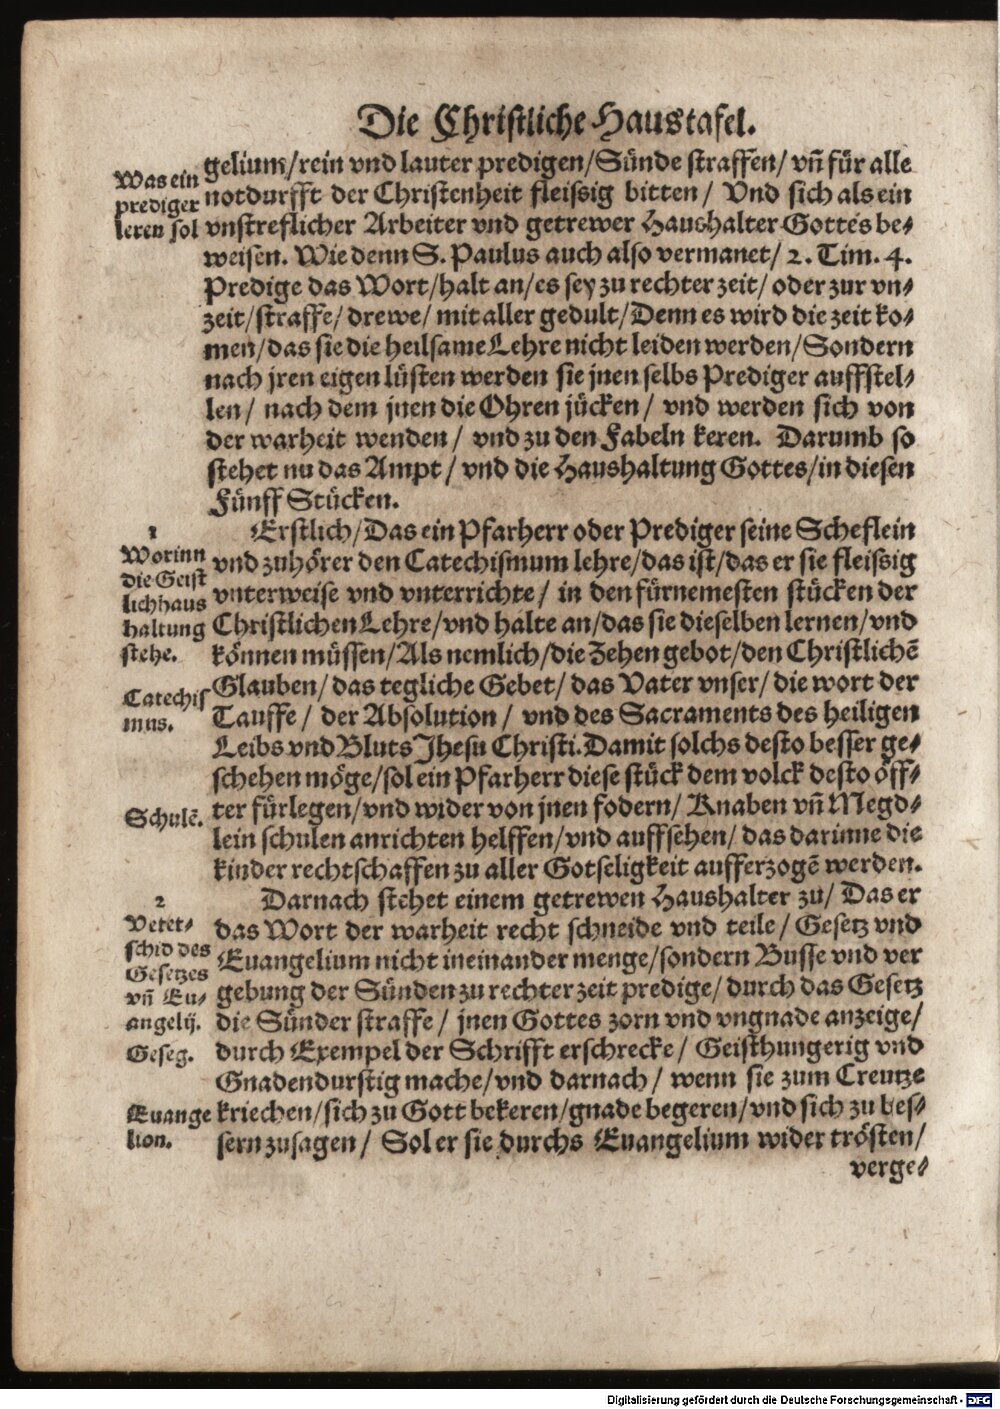 Die Christliche Haustafel.
Was ein
prediger
leren sol
gelium/rein vnd lauter predigen/Sünde straffen/ vñ für alle
notdurfft der Christenheit fleissig bitten/ Vnd sich als ein
vnstreflicher Arbeiter vnd getrewer Haushalter Gottes be⸗
weisen. Wie denn S. Paulus auch also vermanet/ 2. Tim. 4.
Predige das Wort/halt an/es sey zu rechter zeit/ oder zur vn⸗
zeit/straffe/ drewe/ mit aller gedult/Denn es wird die zeit ko⸗
men/das sie die heilsame Lehre nicht leiden werden/Sondern
nach jren eigen lüsten werden sie jnen selbs Prediger auffstel⸗
len/ nach dem jnen die Ohren jücken/ vnd werden sich von
der warheit wenden/ vnd zu den Fabeln keren. Darumb so
stehet nu das Ampt/ vnd die Haushaltung Gottes/in diesen
Fünff Stücken.
1
Worinn
die Geist
lich haus
haltung
stehe.
Erstlich/Das ein Pfarherr oder Prediger seine Scheflein
vnd zuhörer den Catechismum lehre/das ist/das er sie fleissig
vnterweise vnd vnterrichte/ in den fürnemesten stücken der
Christlichen Lehre/vnd halte an/das sie dieselben lernen/vnd
können müssen/Als nemlich/die Zehen gebot/den Christlichē
Catechis
mus.
Glauben/das tegliche Gebet/das Vater vnser/die wort der
Tauffe/ der Absolution/ vnd des Sacraments des heiligen
Leibs vnd Bluts Jhesu Christi. Damit solchs desto besser ge⸗
schehen möge/sol ein Pfarherr diese stück dem volck desto öff⸗
Schulē.
ter fürlegen/vnd wider von jnen fodern/ Knaben vñ Megd⸗
lein schulen anrichten helffen/vnd auffsehen/ das darinne die
kinder rechtschaffen zu aller Gotseligkeit aufferzogē werden.
2
Vnter⸗
schid des
Gesetzes
vñ Eu⸗
angelij.
Darnach stehet einem getrewen Haushalter zu/ Das er
das Wort der warheit recht schneide vnd teile/ Gesetz vnd
Euangelium nicht ineinander menge/sondern Busse vnd ver
gebung der Sünden zu rechter zeit predige/ durch das Gesetz
die Sünder straffe/ jnen Gottes zorn vnd vngnade anzeige/
Geseg.
durch Exempel der Schrifft erschrecke/ Geisthungerig vnd
Gnadendurstig mache/vnd darnach/ wenn sie zum Creutze
Euange
lion.
kriechen/sich zu Gott bekeren/gnade begeren/vnd sich zu bes⸗
sern zusagen/ Sol er sie durchs Euangelium wider trösten/
verge⸗
Digitalisierung gefördert durch die Deutsche Forschungsgemeinschaft - DFG